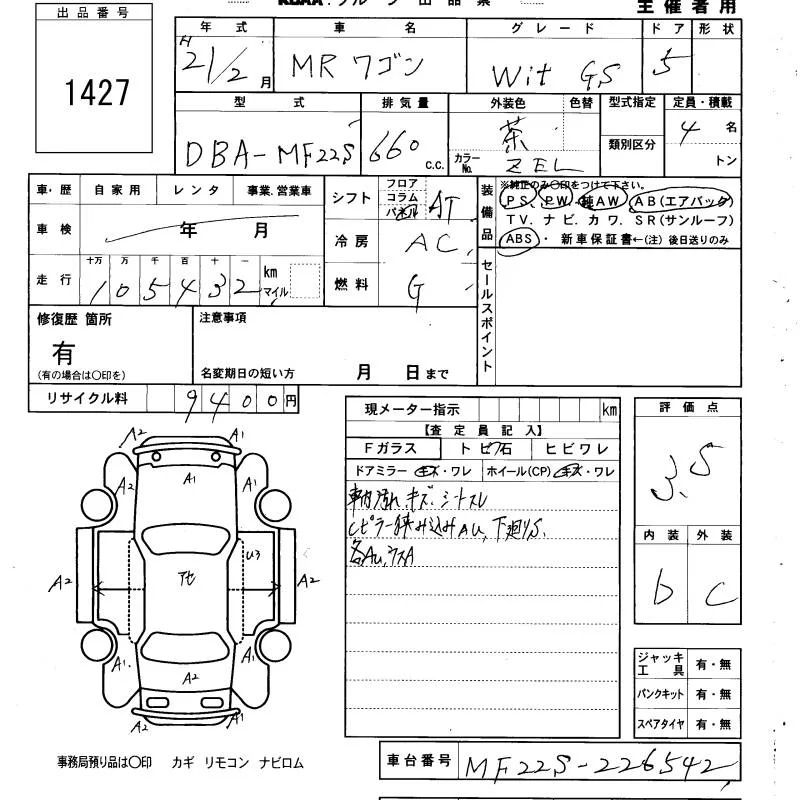 出品番号
1427
主催者用
年式 車名 グレード ドア 形状
H 21/2月 MRワゴン Wit GS 5
型式 排気量 外装色 色替 型式指定 定員・積載
DBA-MF22S 660 c.c. 茶 カラーNo. ZEL 類別区分 4名 トン
車・歴 自家用 レンタ 事業.営業車
車検 年 月
走行 十万 万 千 百 十 一 km マイル
105432
シフト フロア コラム パネル AT
冷房 AC
燃料 G
装備品 ※純正のみ〇印をつけて下さい。
PS、PW・純AW、AB(エアバック)
TV、ナビ、カワ、SR(サンルーフ)
ABS・新車保証書←(注)後日送りのみ
セールスポイント
修復歴 箇所
有
(有の場合は〇印を)
注意事項
名変期日の短い方 月 日まで
リサイクル料 9400円
現メーター指示 km
【査定員記入】
Fガラス トビ石 ヒビワレ
ドアミラー キズ・ワレ ホイール(CP) キズ・ワレ
キズ.シートスレ
Cピラー挟み込みAu,下廻りS.
各Au,
評価点
3.5
内装 外装
b C
A2 A1
A2 A1 A1
U3
A2 アセ A2
A1 A1
A2
A2 A1
ジャッキ工具 有・無
パンクキット 有・無
スペアタイヤ 有・無
事務局預り品は〇印 カギ リモコン ナビロム
車台番号 MF22S-226542